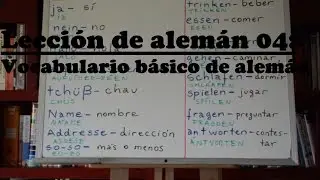 ja - sí
nein - no
Lección de alemán 04:
Vocabulario básico de alemá
tchüβ - chau
Name - nombre
Addresse - dirección
so-so - más o menos
trinken - beber
essen - comer
gehen - caminar
schlafen - dormir
spielen - jugar
SPILEN
fragen - preguntar
FRAGUEN
antworten - contes-
tar
ANTVORTEN